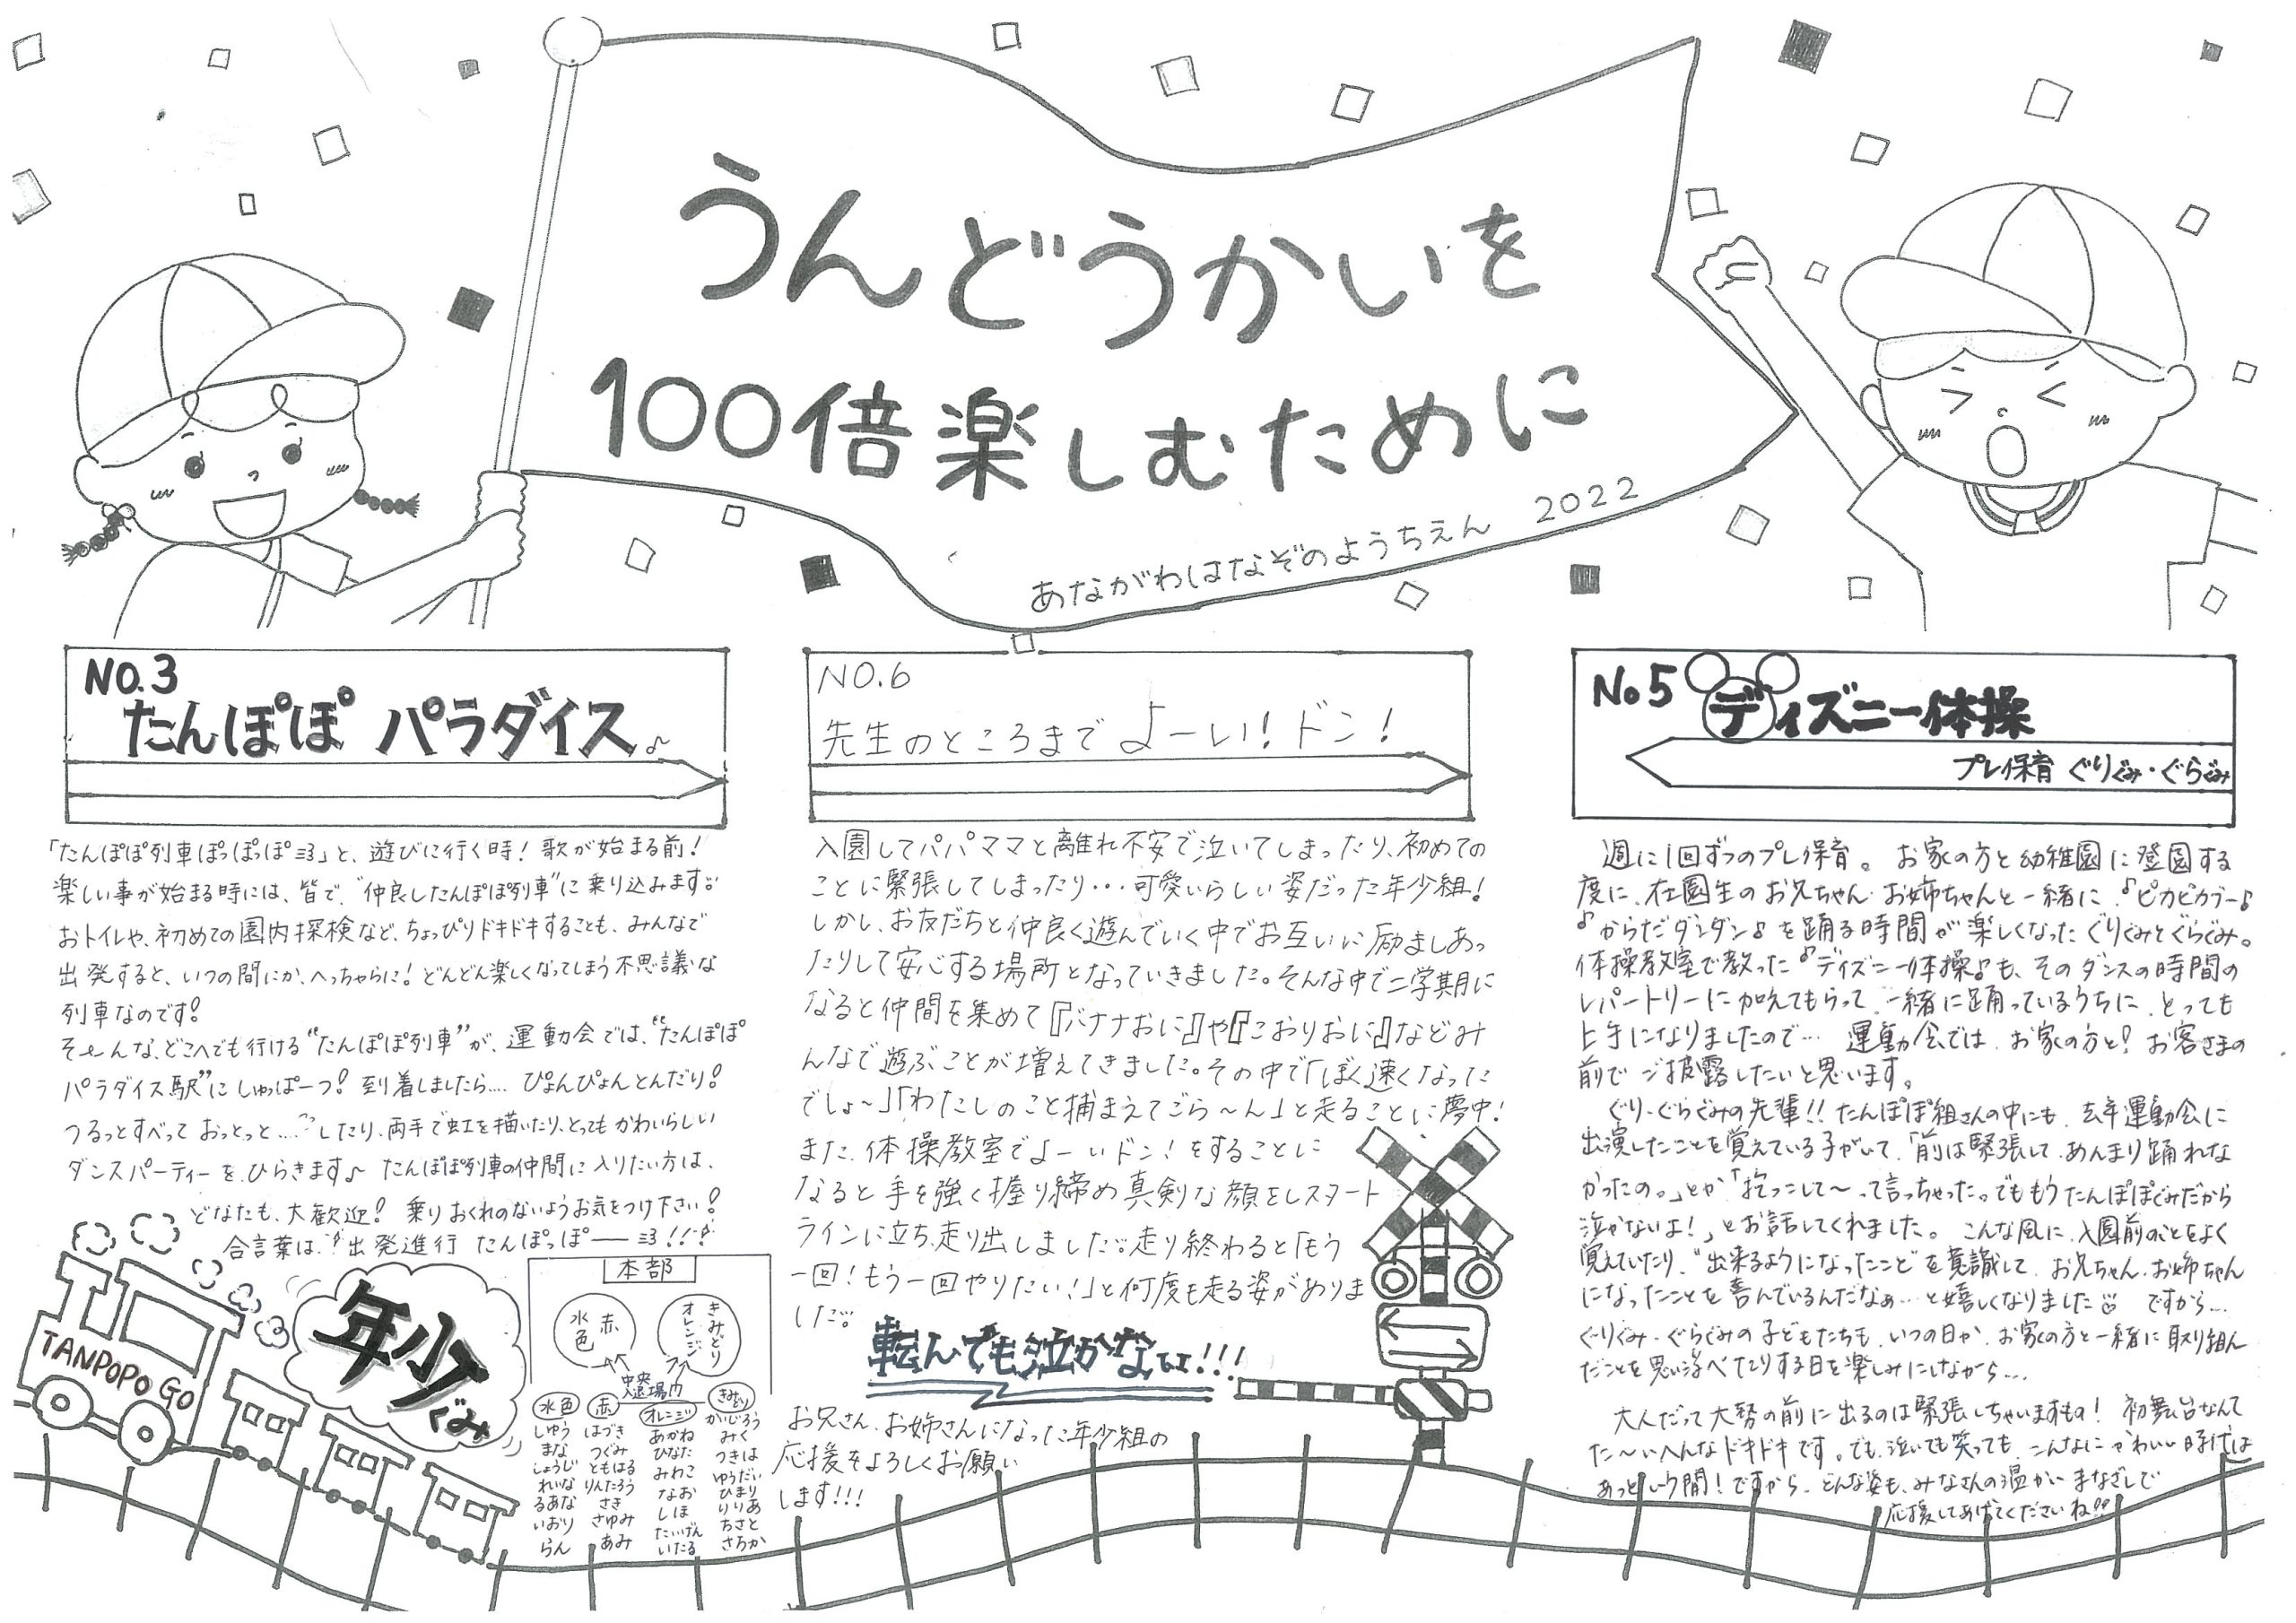 うんどうかいを
100倍楽しむために
あながわはなぞのようちえん 2022
NO.3
たんぽぽ パラダイス♪
「たんぽぽ列車ぽっぽっぽ」と、遊びに行く時！歌が始まる前！
楽しい事が始まる時には、皆で、“仲良したんぽぽ列車”に乗り込みます。
おトイレや、初めての園内探検など、ちょっぴりドキドキすることも、みんなで
出発すると、いつの間にか、へっちゃらに！どんどん楽しくなってしまう不思議な
列車なのです！
そ～んな、どこへでも行ける“たんぽぽ列車”が、運動会では、“たんぽぽ
パラダイス駅”にしゅっぱーつ！到着しましたら…. ぴょんぴょんとんだり！
つるっとすべって おっとっと….. したり、両手で虹を描いたり、とってもかわいらしい
ダンスパーティーを、ひらきます♪ たんぽぽ列車の仲間に入りたい方は、
どなたも、大歓迎！ 乗りおくれのないようお気をつけ下さい！
合言葉は、“出発進行 たんぽっぽ――!!”
TANPOPO GO
年少ぐみ
本部
水色 赤
オレンジ きみどり
中央
入退場門
水色
しゅう
まな
しょうじ
れいな
るあな
いおり
らん
赤
はづき
つぐみ
ともはる
りんたろう
さき
さゆみ
あみ
オレンジ
あかね
ひなた
みわこ
なお
しほ
たいげん
いたる
きみどり
かいじろう
みく
つきは
ゆうだい
ひまり
りりあ
ちさと
さちか
NO.6
先生のところまで よーい！ドン！
入園してパパママと離れ不安で泣いてしまったり、初めての
ことに緊張してしまったり・・・可愛いらしい姿だった年少組！
しかし、お友だちと仲良く遊んでいく中でお互いに励ましあっ
たりして安心する場所となっていきました。そんな中で二学期に
なると仲間を集めて『バナナおに』や『こおりおに』などみ
んなで遊ぶことが増えてきました。その中で「ぼく速くなった
でしょ～」「わたしのこと捕まえてごら～ん」と走ることに夢中！
また、体操教室でよーいドン！をすることに
なると手を強く握り締め真剣な顔をしスタート
ラインに立ち、走り出しました。走り終わると「もう
一回！もう一回やりたい！」と何度も走る姿がありま
した。
転んでも泣かない!!!
お兄さん、お姉さんになった年少組の
応援をよろしくお願い
します!!!
No5 ディズニー体操
プレ保育 ぐりぐみ・ぐらぐみ
週に1回ずつのプレ保育。 お家の方と幼稚園に登園する
度に、在園生のお兄ちゃん・お姉ちゃんと一緒に、♪ピカピカブー♪
♪からだダンダン♪を踊る時間が楽しくなったぐりぐみとぐらぐみ。
体操教室で教った♪ディズニー体操♪も、そのダンスの時間の
レパートリーに加えてもらって、一緒に踊っているうちに、とっても
上手になりましたので… 運動会では、お家の方と！お客さまの
前でご披露したいと思います。
ぐり・ぐらぐみの先輩!! たんぽぽ組さんの中にも、去年運動会に
出演したことを覚えている子がいて、「前は緊張して、あんまり踊れな
かったの。」とか「抱っこして～って言っちゃった。でももうたんぽぽぐみだから
泣かないよ！」とお話してくれました。 こんな風に、入園前のことをよく
覚えていたり、“出来るようになったこと”を意識して、お兄ちゃん、お姉ちゃん
になったことを喜んでいるんだなぁ…と嬉しくなりました ですから…
ぐりぐみ・ぐらぐみの子どもたちも、いつの日か、お家の方と一緒に取り組ん
だことを思い浮べたりする日を楽しみにしながら…
大人だって大勢の前に出るのは緊張しちゃいますもの！ 初舞台なんて
た～いへんなドキドキです。でも、泣いても笑っても、こんなにかわいい時代は
あっという間！ですから、どんな姿も、みなさんの温かいまなざしで
応援してあげてくださいね!!